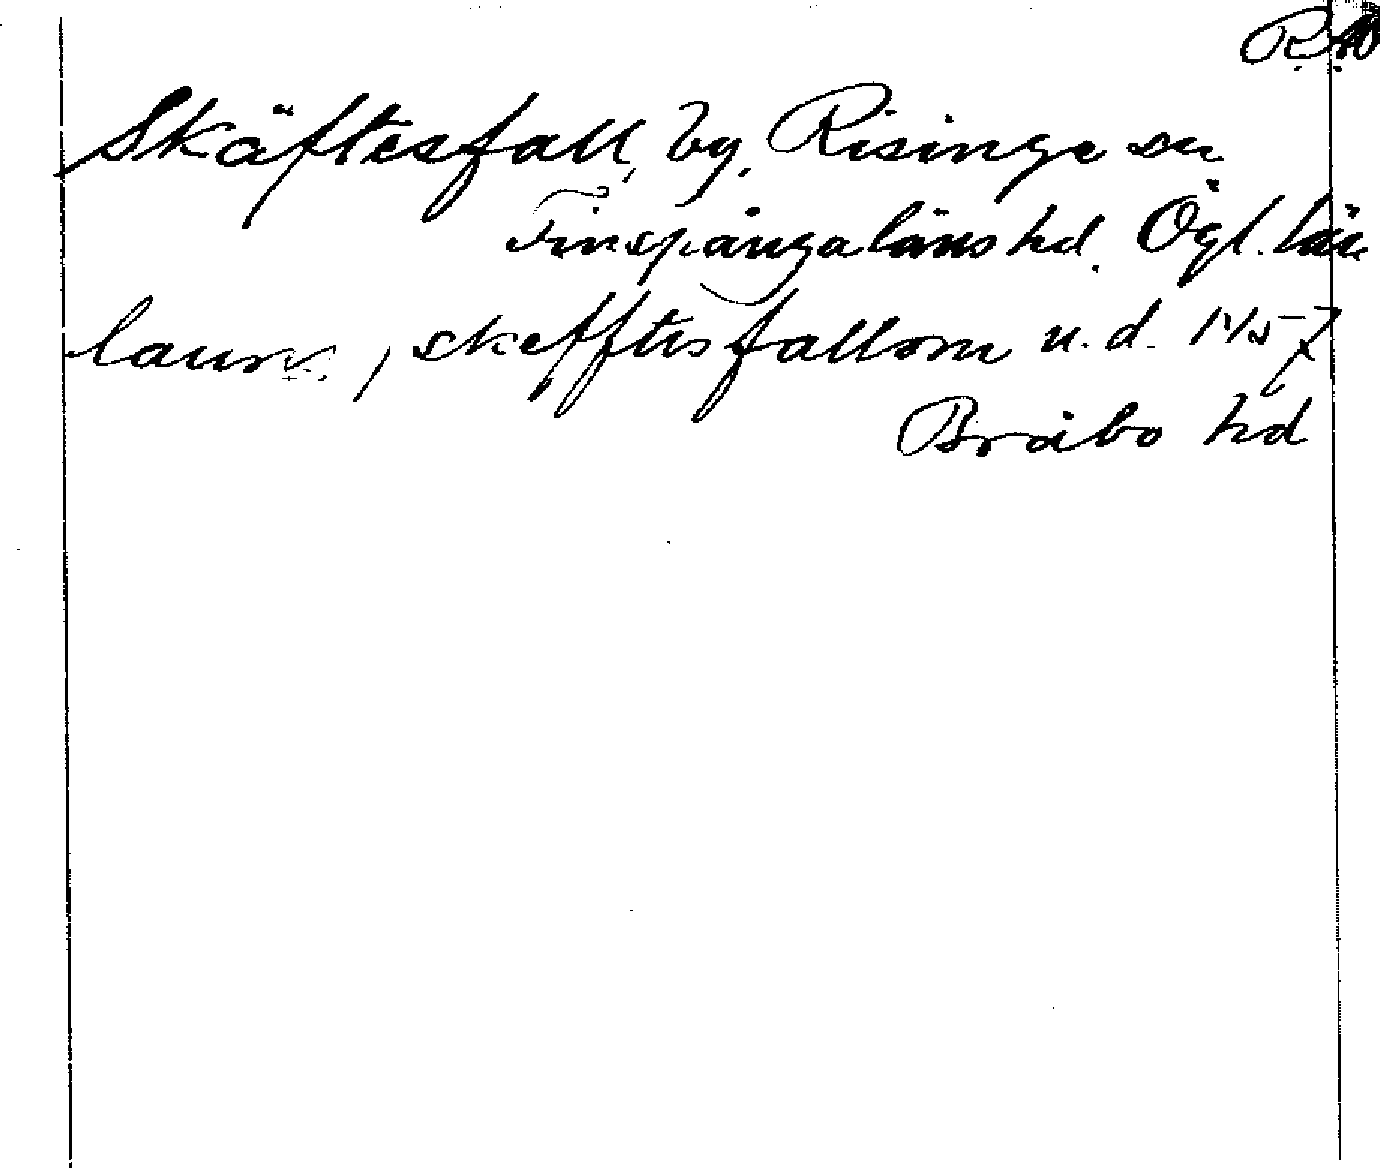 Skäftesfall, by, Risinge sn
Finspångaläns hd. Ögl. län
laurs, i skefftesfallom u.d. 1457
Bråbo hd